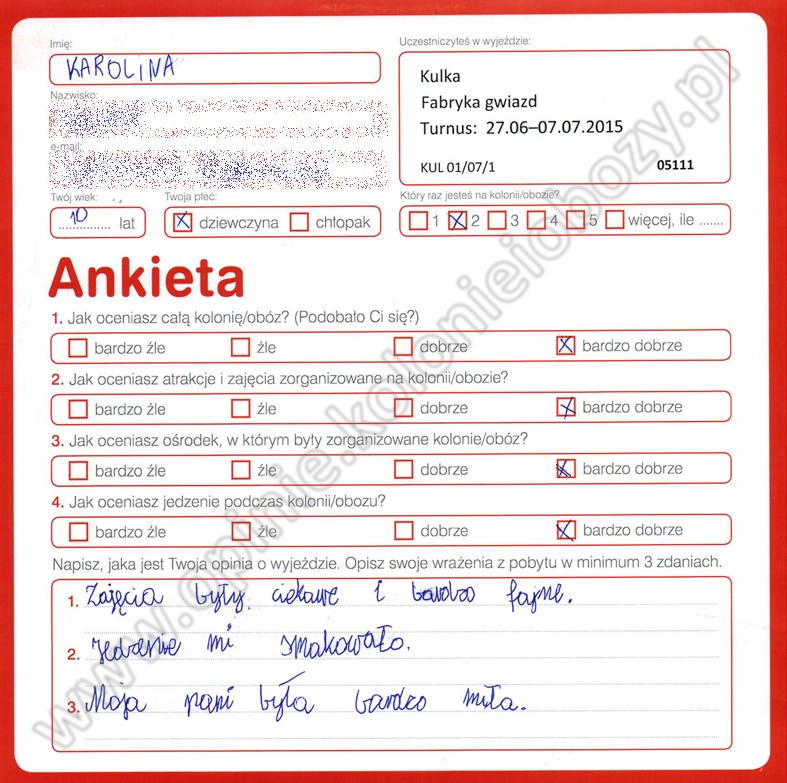 Imię:
KAROLINA
Uczestniczyłeś w wyjeździe:
Kulka
Fabryka gwiazd
Turnus: 27.06–07.07.2015
KUL 01/07/1 05111
Nazwisko:
e-mail:
Twój wiek:
10 lat
Twoja płeć:
dziewczyna chłopak
Który raz jesteś na kolonii/obozie?
1 2 3 4 5 więcej, ile .......
Ankieta
1. Jak oceniasz całą kolonię/obóz? (Podobało Ci się?)
bardzo źle źle dobrze bardzo dobrze
2. Jak oceniasz atrakcje i zajęcia zorganizowane na kolonii/obozie?
bardzo źle źle dobrze bardzo dobrze
3. Jak oceniasz ośrodek, w którym były zorganizowane kolonie/obóz?
bardzo źle źle dobrze bardzo dobrze
4. Jak oceniasz jedzenie podczas kolonii/obozu?
bardzo źle źle dobrze bardzo dobrze
Napisz, jaka jest Twoja opinia o wyjeździe. Opisz swoje wrażenia z pobytu w minimum 3 zdaniach.
1. Zajęcia były ciekawe i bardzo fajne.
2. Jedzenie mi smakowało.
3. Moja pani była bardzo miła.
www.opinie.kolonieiobozy.pl